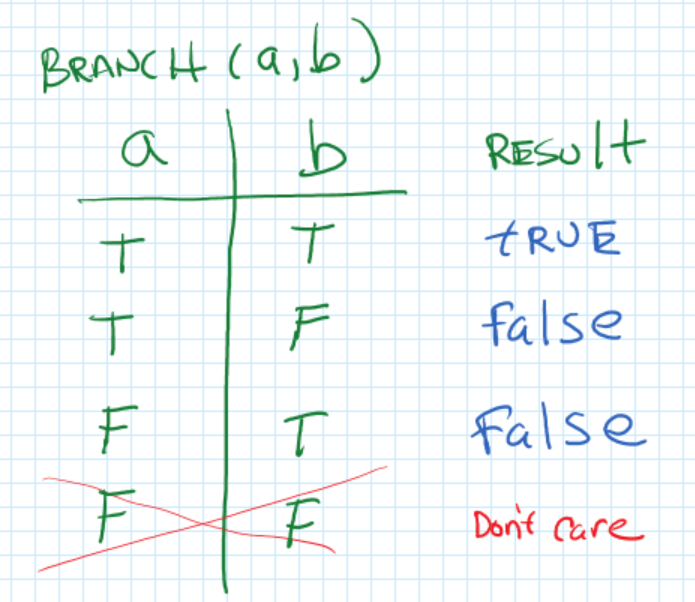 BRANCH (a,b)
a b RESULt
T T tRUE
T F false
F T False
F F Don't care